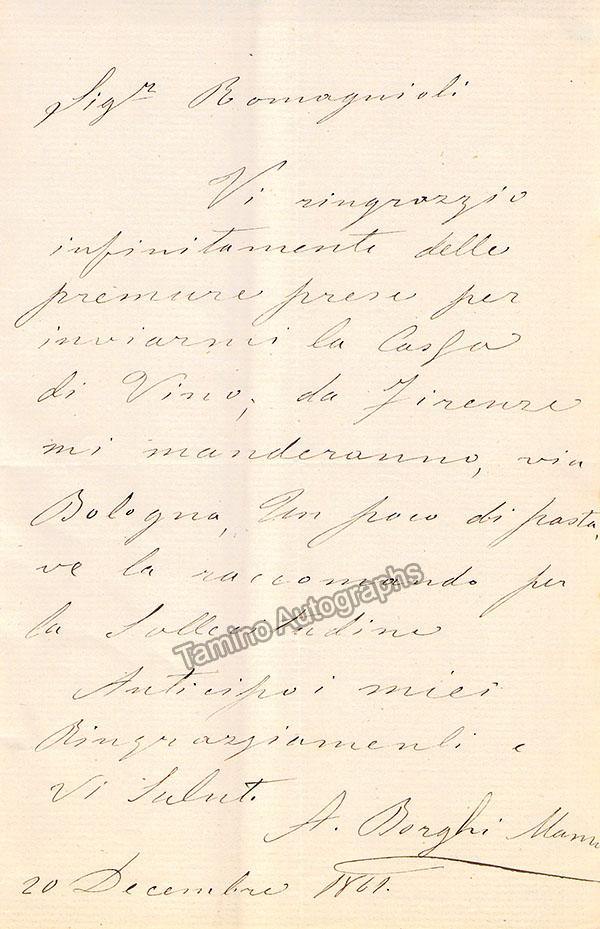 Sigr Romagnioli
Vi ringrazzio
infinitamente delle
premure prese per
inviarmi la Cassa
di Vino, da Firenze
mi manderanno, via
Bologna, Un poco di pasta,
ve la raccomando per
la Sollecitudine
Tamino Autographs
Anticipo i miei
Ringraziamenti e
Vi Saluto
A. Borghi Mam
20 Decembre 1861.